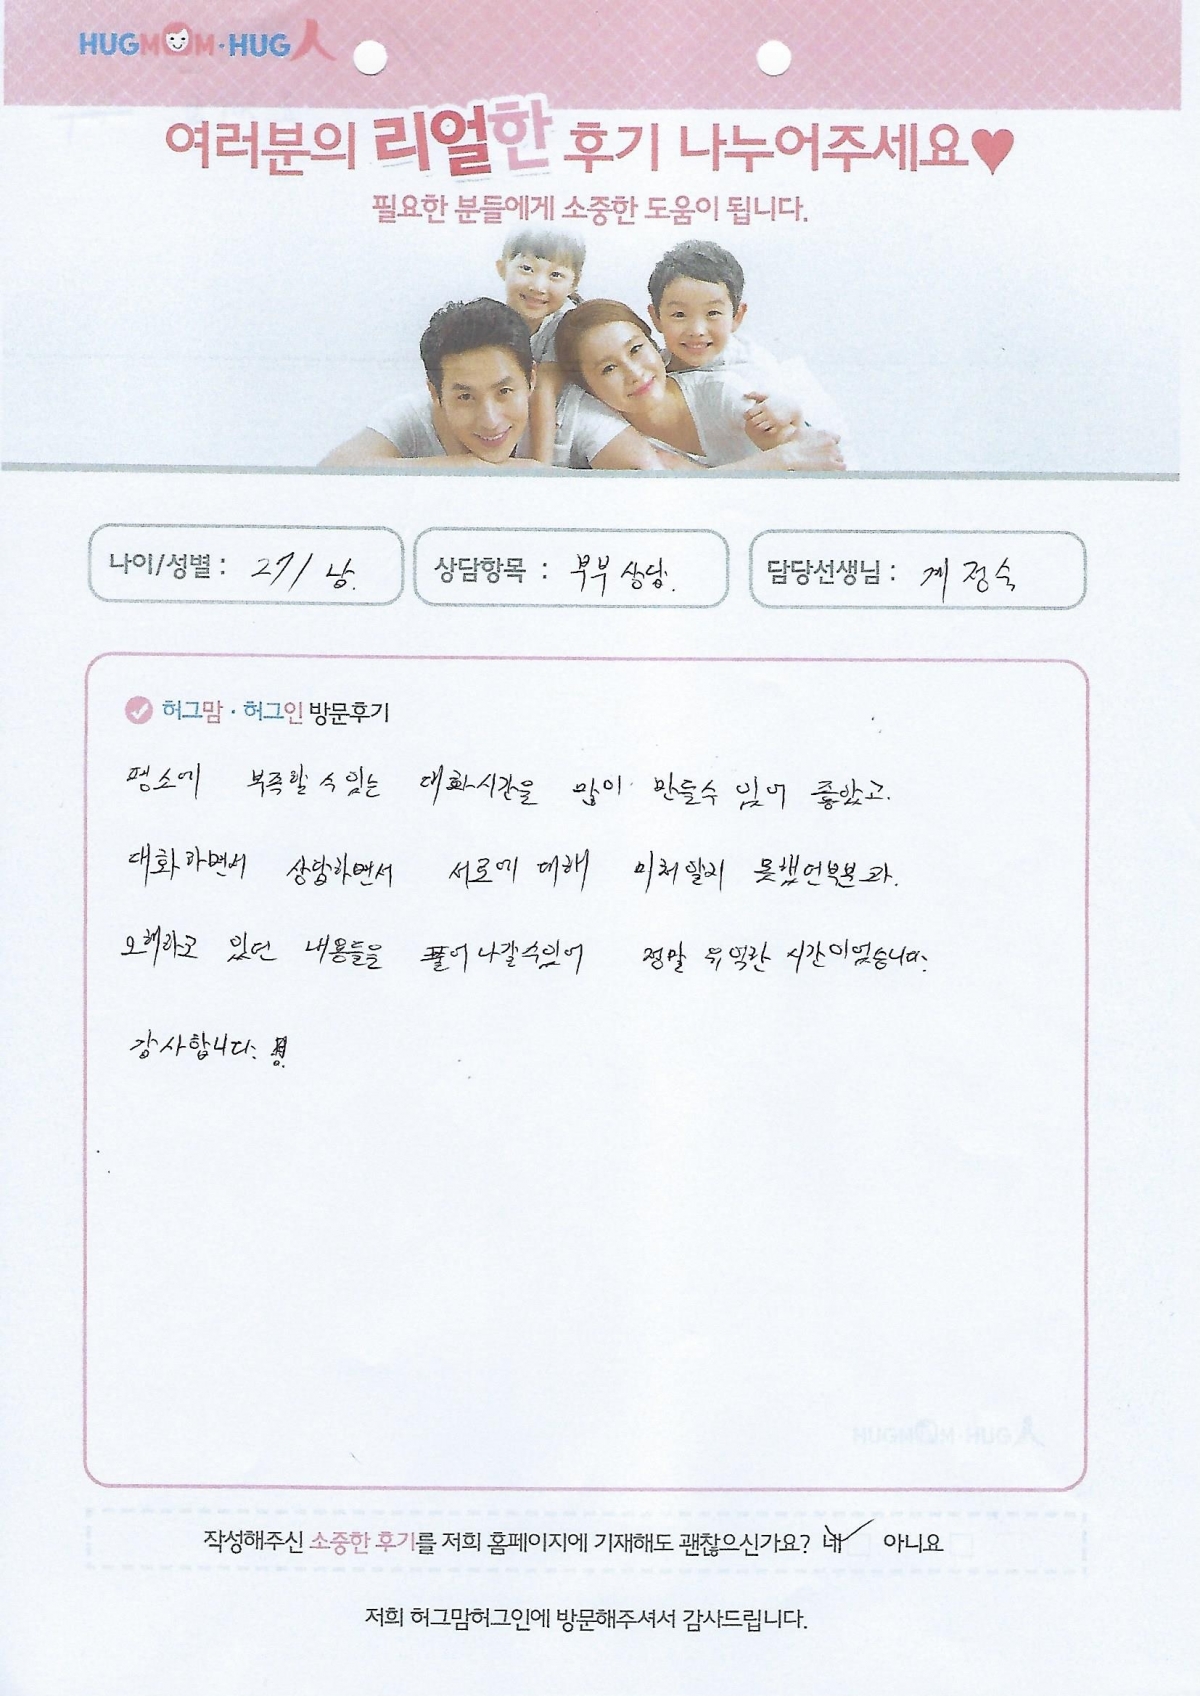 HUGMOM·HUG人
여러분의 리얼한 후기 나누어주세요♥
필요한 분들에게 소중한 도움이 됩니다.
나이/성별 : 27/남.
상담항목 : 부부상담.
담당선생님 : 계정숙
허그맘·허그인 방문후기
평소에 부족할 수 있는 대화시간을 많이 만들수 있어 좋았고.
대화하면서 상담하면서 서로에 대해 미처알지 못했던부분과.
오해라고 있던 내용들을 풀어나갈수있어 정말 유익한 시간이었습니다.
감사합니다.
작성해주신 소중한 후기를 저희 홈페이지에 기재해도 괜찮으신가요? 네 아니요
저희 허그맘허그인에 방문해주셔서 감사드립니다.